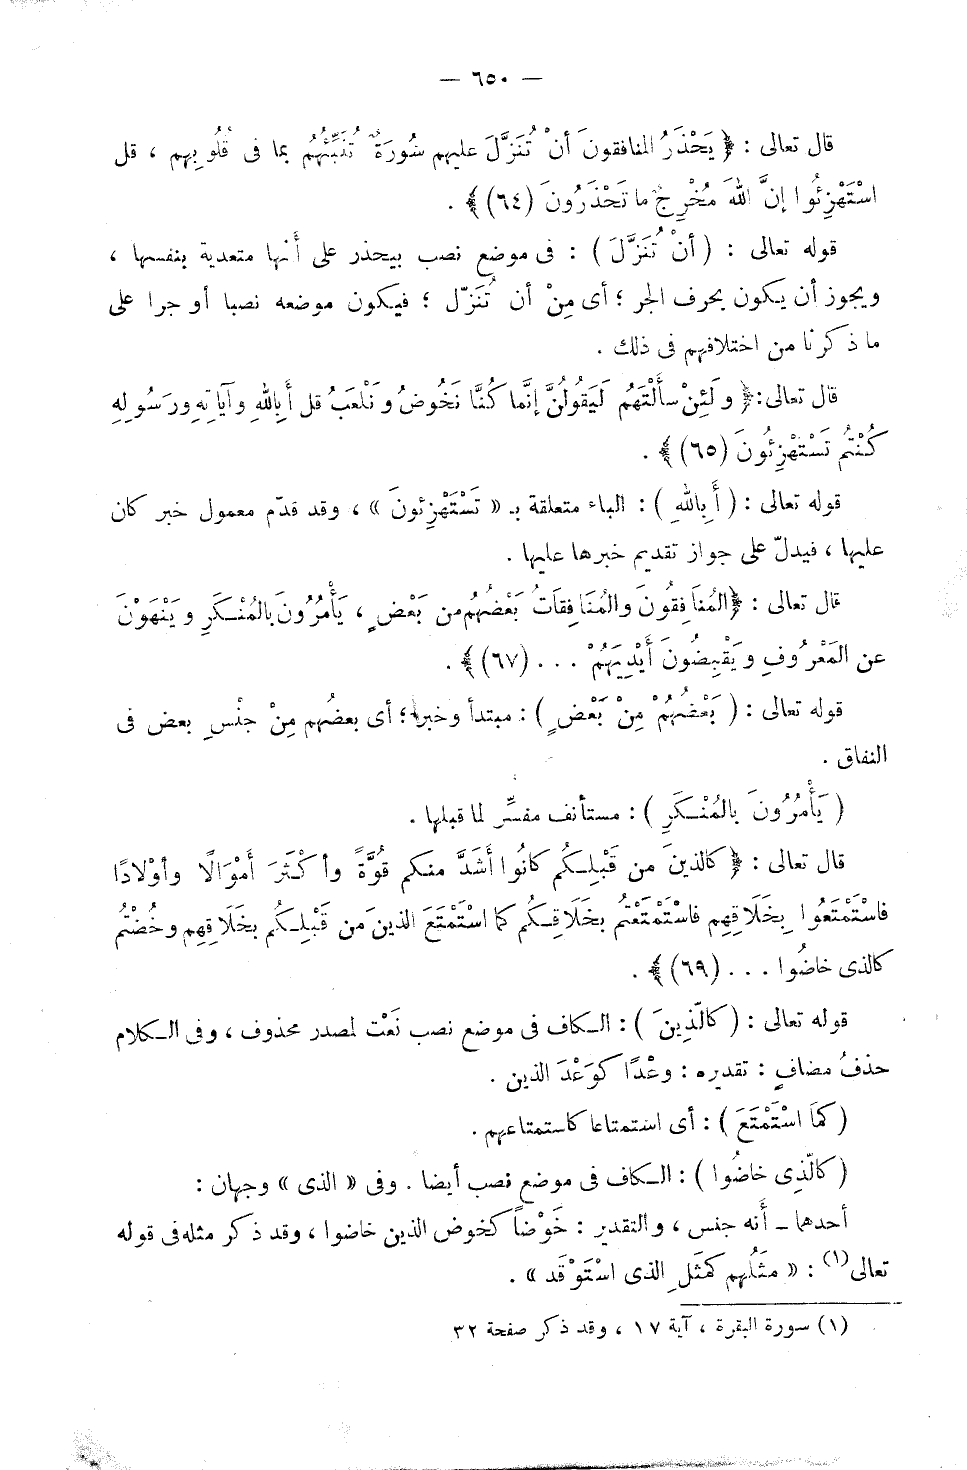 — ٦٥٠ —
قال تعالى : ﴿ يَحْذَرُ المنافقونَ أنْ تُنَزَّلَ عليهم سُورَةٌ تُنَبِّئُهُم بما فى قُلُوبِهم ، قل
اسْتَهْزِئُوا إنَّ اللهَ مُخْرِجٌ ما تَحْذَرُونَ (٦٤) ﴾ .
قوله تعالى : ( أنْ تُنَزَّلَ ) : فى موضع نصب بيحذر على أنها متعدية بنفسها ،
ويجوز أن يكون بحرف الجر ؛ أى مِنْ أن تُنَزّل ؛ فيكون موضعه نصبا أو جرا على
ما ذكرنا من اختلافهم فى ذلك .
قال تعالى: ﴿ ولَئِنْ سألْتَهُم لَيَقُولُنَّ إنَّما كُنَّا نَخُوضُ ونَلْعَبُ قل أَبِاللهِ وآياتِهِ ورَسُولِهِ
كُنْتُم تَسْتَهْزِئُونَ (٦٥) ﴾ .
قوله تعالى : ( أَبِاللهِ ) : الباء متعلقة بـ « تَسْتَهْزِئونَ » ، وقد قدّم معمول خبر كان
عليها ، فيدلّ على جواز تقديم خبرها عليها .
قال تعالى : ﴿ المُنَافِقُونَ والمُنَافِقاتُ بَعْضُهُم من بَعْضٍ ، يَأْمُرُونَ بالمُنْكَرِ ويَنْهَوْنَ
عن المَعْرُوفِ ويَقْبِضُونَ أَيْدِيَهُمْ ... (٦٧) ﴾ .
قوله تعالى : ( بَعْضُهُمْ مِنْ بَعْضٍ ) : مبتدأ وخبر ؛ أى بعضُهم مِنْ جنْسِ بعض فى
النفاق .
( يَأْمُرُونَ بالمُنْكَرِ ) : مستأنف مفسِّر لما قبلها .
قال تعالى : ﴿ كالذينَ من قَبْلِكُم كانُوا أَشَدَّ منكم قُوَّةً وأكْثَرَ أَمْوَالًا وأوْلادًا
فاسْتَمْتَعُوا بِخَلَاقِهِم فاسْتَمْتَعْتُم بخَلَاقِكُم كما اسْتَمْتَعَ الذينَ من قَبْلِكُم بخَلَاقِهِم وخُضْتُم
كالذى خاضُوا ... (٦٩) ﴾ .
قوله تعالى : ( كالّذِينَ ) : الكاف فى موضع نصب نَعْت لمصدر محذوف ، وفى الكلام
حذفُ مضافٍ : تقديره : وعْدًا كوَعْدَ الذين .
( كَما اسْتَمْتَعَ ) : أى استمتاعا كاستمتاعهم .
( كالّذِى خاضُوا ) : الكاف فى موضع نصب أيضا . وفى « الذى » وجهان :
أحدهما ـ أنه جنس ، والتقدير : خَوْضاً كخوض الذين خاضوا ، وقد ذكر مثله فى قوله
تعالى(١) : « مثَلُهم كمَثَلِ الذى اسْتَوْقَد » .
(١) سورة البقرة ، آية ١٧ ، وقد ذكر صفحة ٣٢